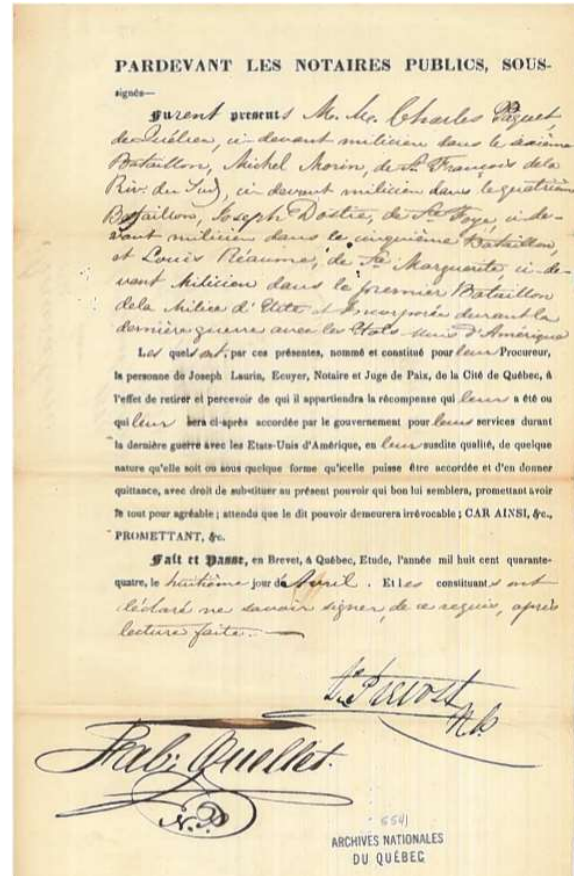 PARDEVANT LES NOTAIRES PUBLICS, SOUS-
signés—
Furent presents M. M. Charles Paquet,
de Québec, ci-devant milicien dans le sixième
Bataillon, Michel Morin, de St. François dela
Riv. du Sud, ci-devant milicien dans le quatrième
Bataillon, Joseph Dostie, de Ste Foye, ci-de-
vant milicien dans le cinquième Bataillon,
et Louis Réaume, de Ste Marguerite, ci-de-
vant Milicien dans le premier Bataillon
dela Milice d'Elite et Incorporée durant la
dernière guerre avec les Etats-unis d'Amérique
Les quels ont, par ces présentes, nommé et constitué pour leur Procureur,
la personne de Joseph Laurin, Ecuyer, Notaire et Juge de Paix, de la Cité de Québec, à
l'effet de retirer et percevoir de qui il appartiendra la récompense qui leur a été ou
qui leur sera ci-après accordée par le gouvernement pour leurs services durant
la dernière guerre avec les Etats-Unis d'Amérique, en leur susdite qualité, de quelque
nature qu'elle soit ou sous quelque forme qu'icelle puisse être accordée et d'en donner
quittance, avec droit de substituer au présent pouvoir qui bon lui semblera, promettant avoir
le tout pour agréable ; attendu que le dit pouvoir demeurera irrévocable ; CAR AINSI, &c.,
PROMETTANT, &c.
Fait et Passé, en Brevet, à Québec, Etude, l'année mil huit cent quarante-
quatre, le huitième jour de Avril. Et les constituants ont
déclaré ne savoir signer, de ce requis, après
lecture faite.—
Prevost
N.P.
Fab: Ouellet.
N.P.
5541
ARCHIVES NATIONALES
DU QUÉBEC